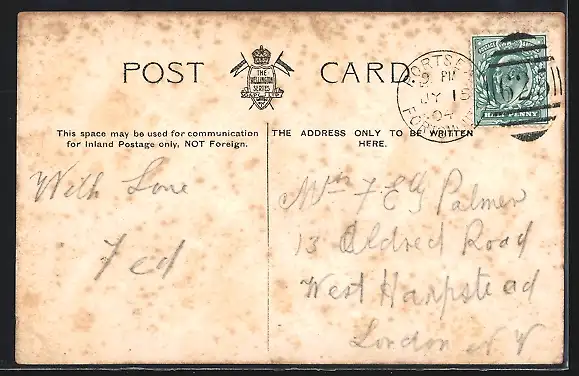 POST CARD
THE
WELLINGTON
SERIES
This space may be used for communication
for Inland Postage only, NOT Foreign.
THE ADDRESS ONLY TO BE WRITTEN
HERE.
With Love
Fed
Palmer
13 Aldred Road
West Hampstead
London N W
PORTSEA
PM
JY 15
04
POSTAGE
HALF PENNY